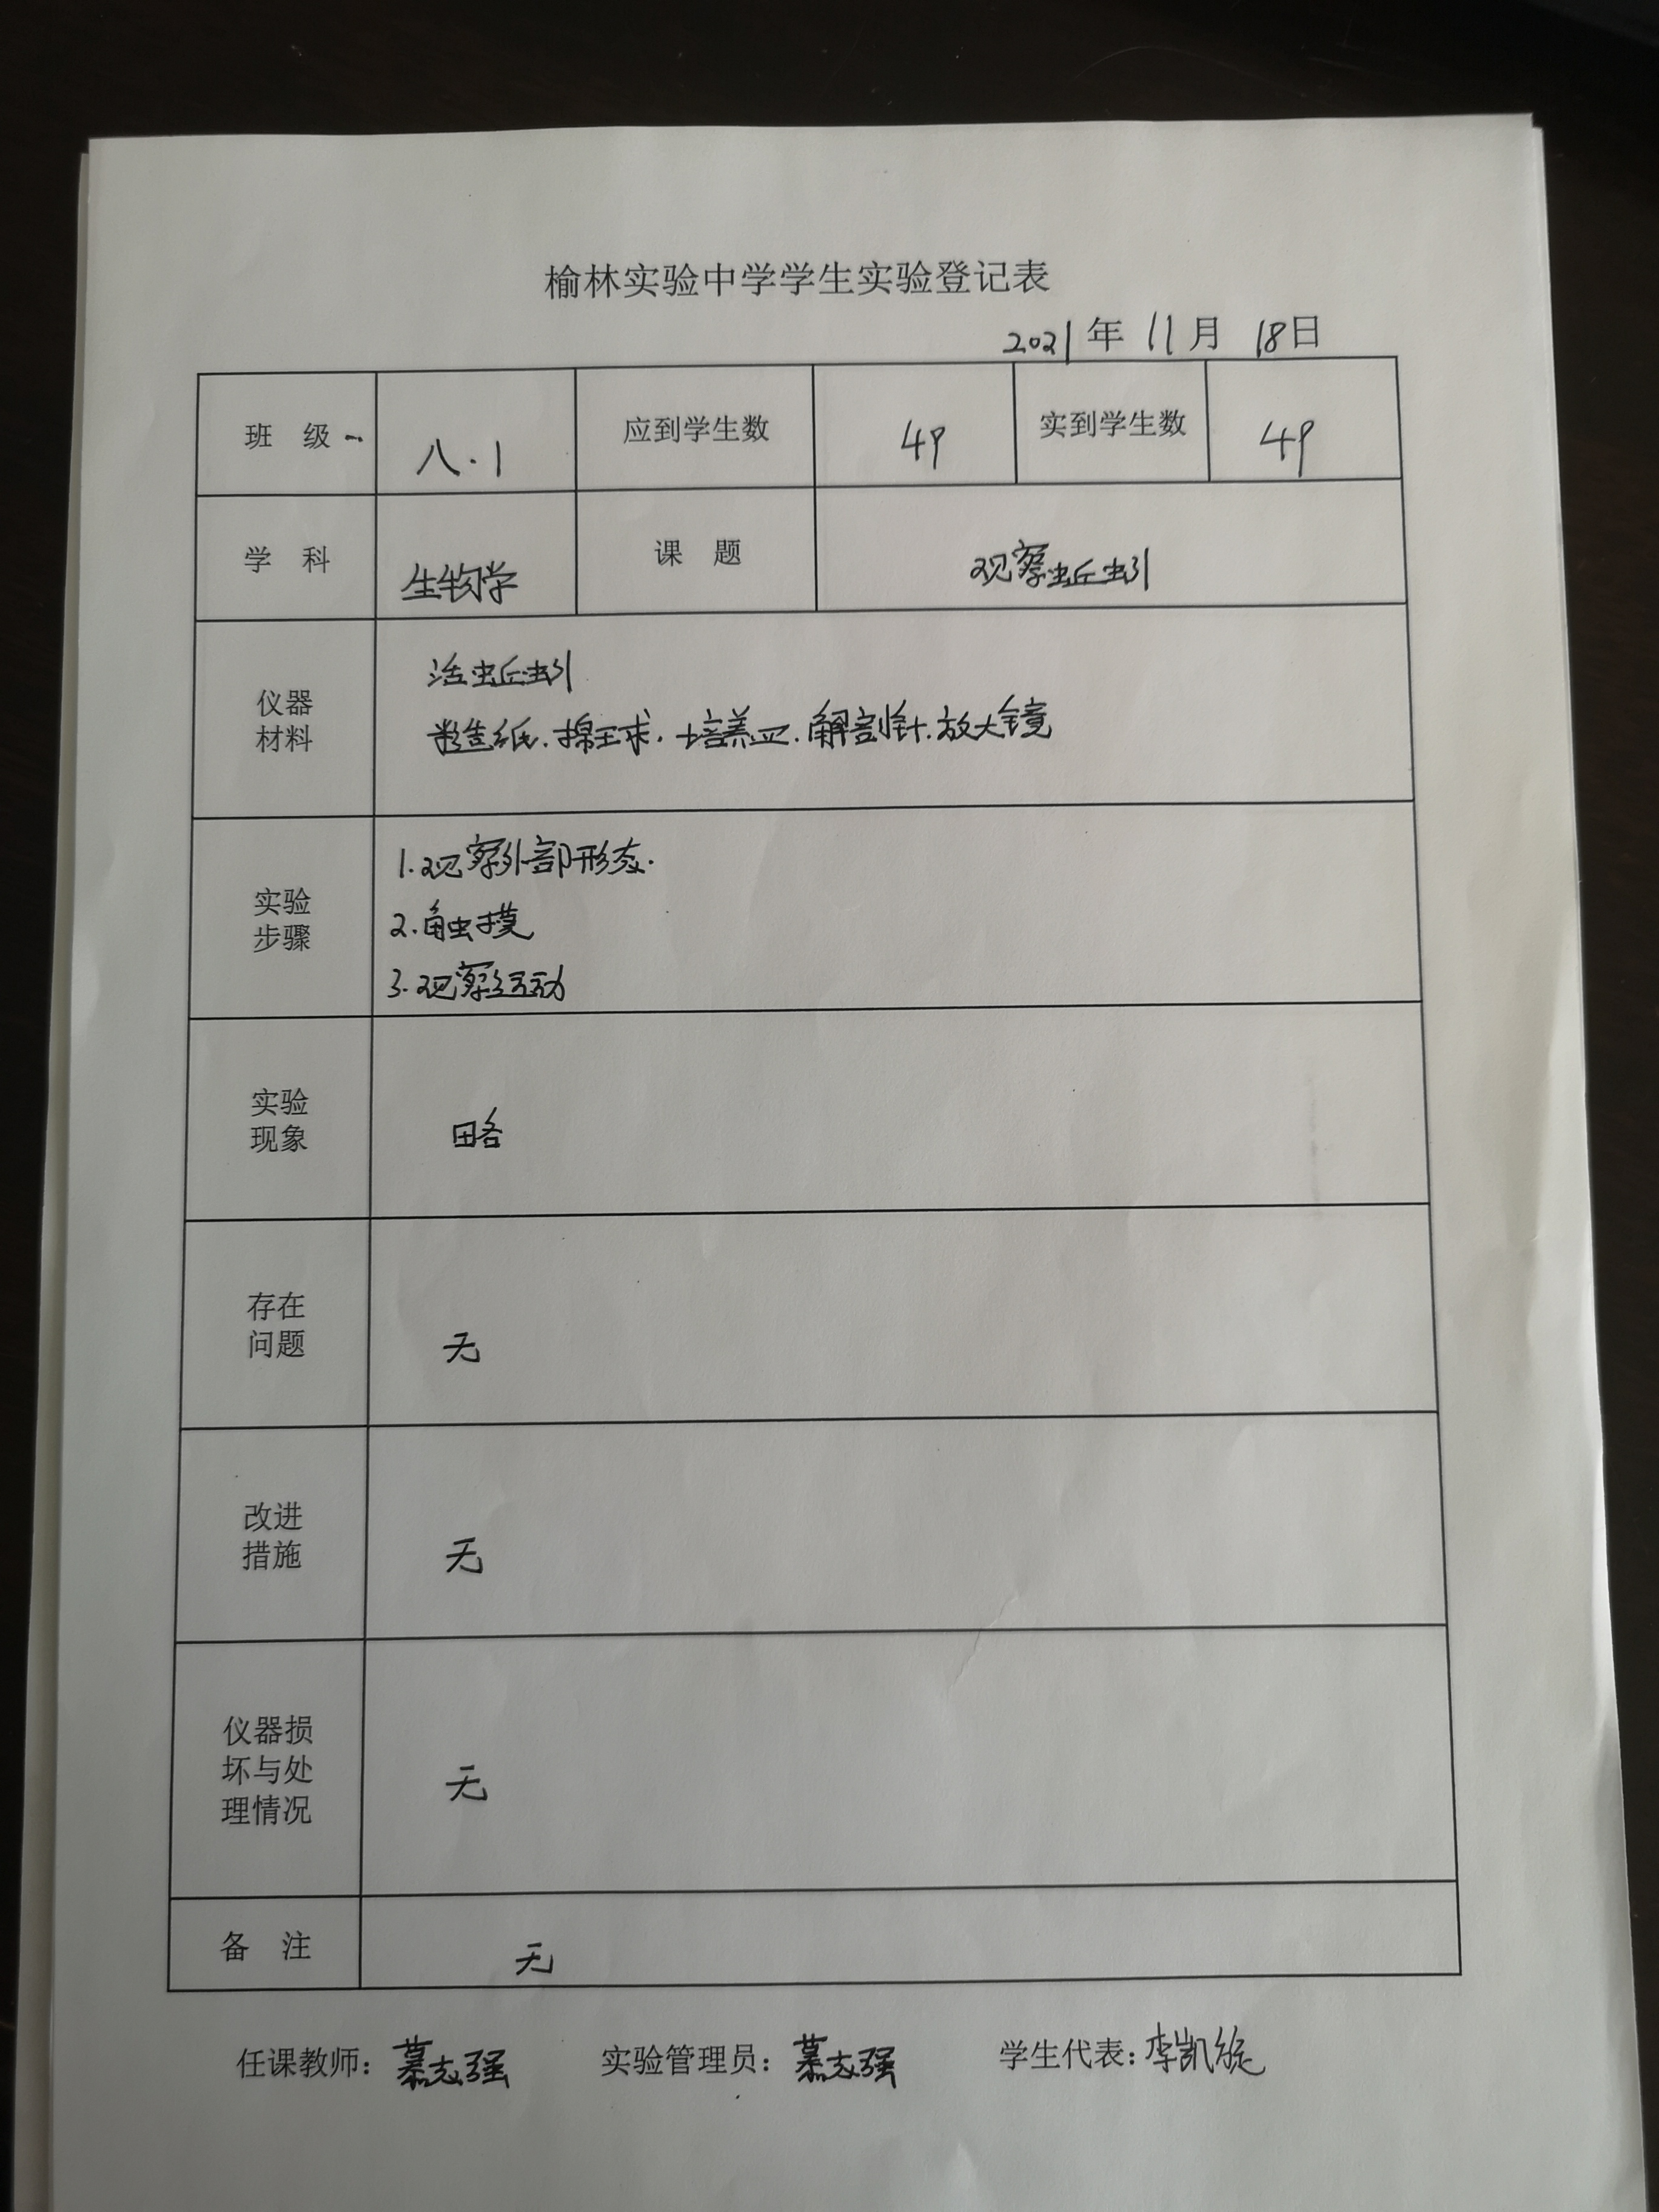 榆林实验中学学生实验登记表
2021年 11月 18日
班 级 八.1 应到学生数 49 实到学生数 49
学 科 生物学 课 题 观察蚯蚓
仪器材料
活蚯蚓
糙纸.棉球.培养皿.解剖针.放大镜
实验步骤
1.观察外部形态.
2.触摸
3.观察运动
实验现象 略
存在问题 无
改进措施 无
仪器损坏与处理情况 无
备 注 无
任课教师：慕志强 实验管理员：慕志强 学生代表：李凯旋